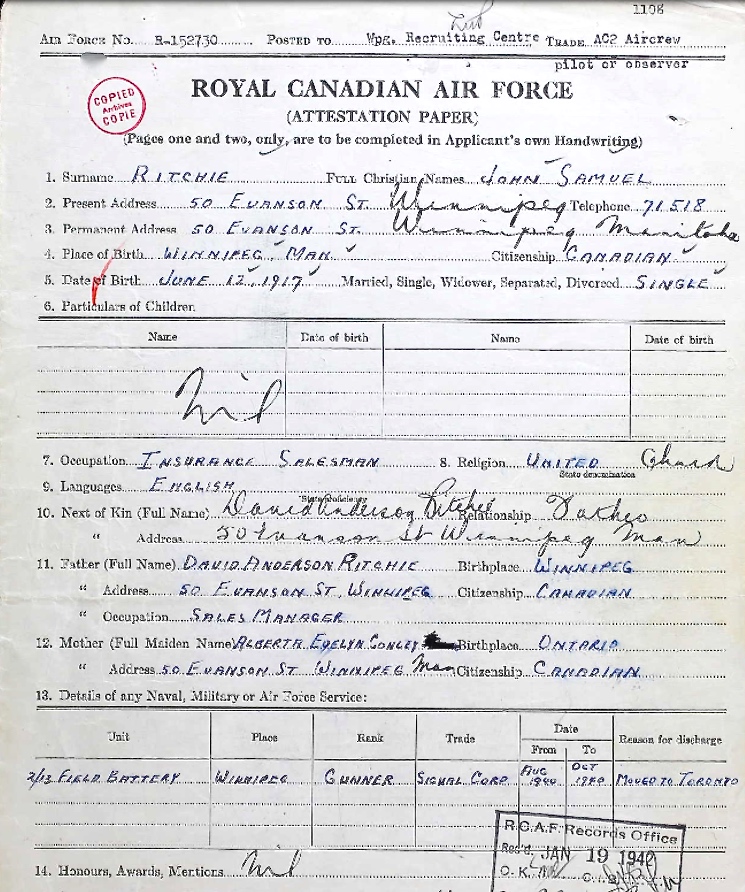 1106
AIR FORCE No. R-152730 POSTED TO Wpg. Recruiting Centre TRADE AC2 Aircrew
pilot or observer
COPIED
Archives
COPIE
ROYAL CANADIAN AIR FORCE
(ATTESTATION PAPER)
(Pages one and two, only, are to be completed in Applicant's own Handwriting)
1. Surname RITCHIE FULL Christian Names JOHN SAMUEL
2. Present Address 50 EVANSON ST. Winnipeg Telephone 71518
3. Permanent Address 50 EVANSON ST. Winnipeg Manitoba
4. Place of Birth WINNIPEG, MAN. Citizenship CANADIAN
5. Date of Birth JUNE 12, 1917 Married, Single, Widower, Separated, Divorced SINGLE
6. Particulars of Children.
Name Date of birth Name Date of birth
Nil
7. Occupation INSURANCE SALESMAN 8. Religion UNITED Church
State denomination
9. Languages ENGLISH
State proficiency
10. Next of Kin (Full Name) David Anderson Ritchie Relationship Father
" Address 50 Evanson St Winnipeg Man
11. Father (Full Name) DAVID ANDERSON RITCHIE Birthplace WINNIPEG
" Address 50 EVANSON ST. WINNIPEG Citizenship CANADIAN
" Occupation SALES MANAGER
12. Mother (Full Maiden Name) ALBERTA EVELYN CONLEY Birthplace ONTARIO
" Address 50 EVANSON ST WINNIPEG Man Citizenship CANADIAN
13. Details of any Naval, Military or Air Force Service:
Unit Place Rank Trade Date Reason for discharge
From To
2/13 FIELD BATTERY WINNIPEG GUNNER SIGNAL CORP AUG 1940 OCT 1940 MOVED TO TORONTO
R.C.A.F. Records Office
Rec'd. JAN 19 1942
O. K.
14. Honours, Awards, Mentions Nil